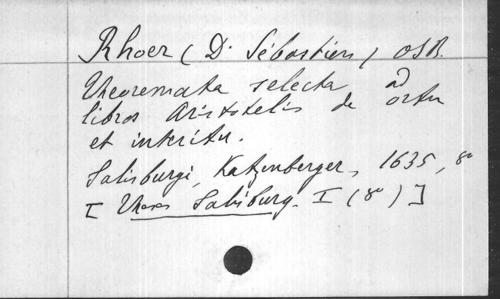 Rhoer (D. Sébastien) OSB.
Theoremata selecta ad
libros Aristotelis de ortu
et interitu.
Salisburgi, Katzenberger, 1635, 8º
[ Theses Salisburg. I (8º) ]